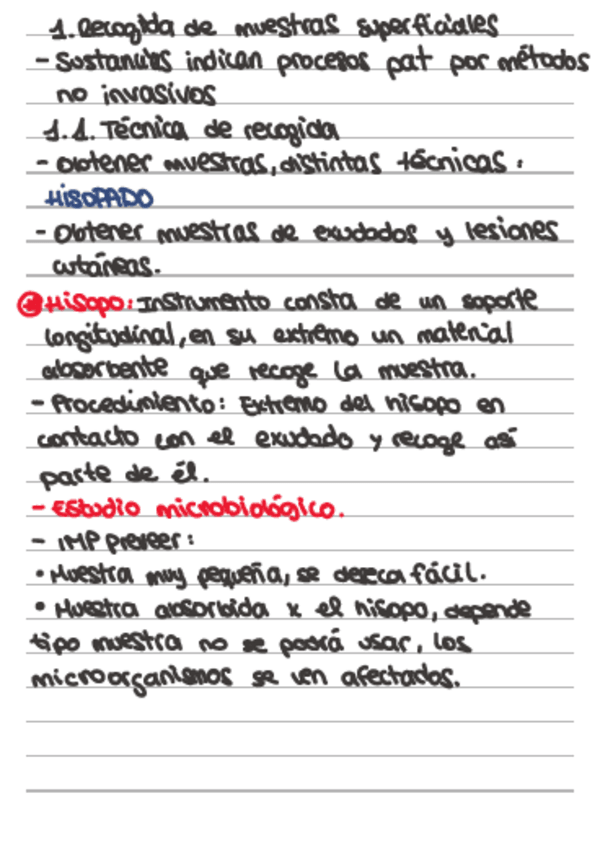 1. Recogida de muestras superficiales
- Sustancias indican procesos pat por métodos
no invasivos
1.1. Técnica de recogida
- Obtener muestras, distintas técnicas :
HISOPADO
- Obtener muestras de exudados y lesiones
cutáneas.
Hisopo: Instrumento consta de un soporte
longitudinal, en su extremo un material
absorbente que recoge la muestra.
- Procedimiento: Extremo del hisopo en
contacto con el exudado y recoge así
parte de él.
- Estudio microbiológico.
- IMP preveer :
• Muestra muy pequeña, se deseca fácil.
• Muestra absorbida x el hisopo, depende
tipo muestra no se podrá usar, los
microorganismos se ven afectados.